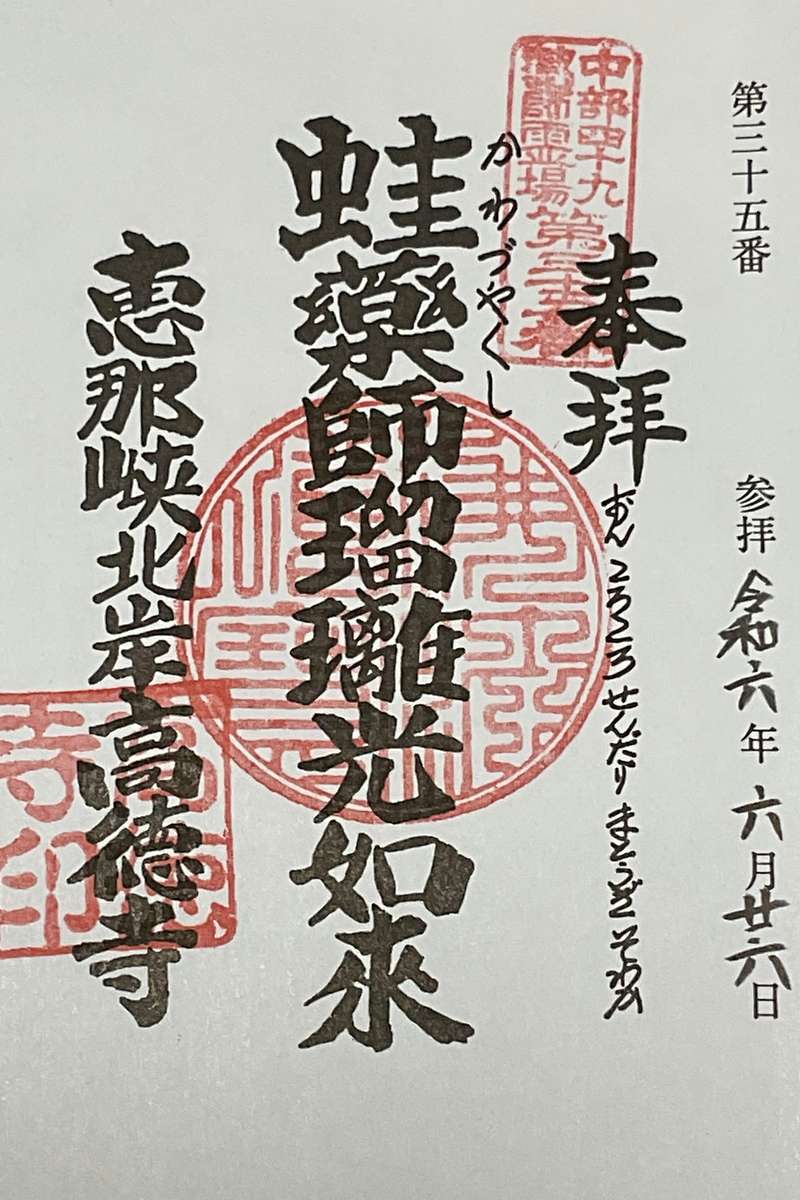 第三十五番 参拝 令和六年六月廿六日
中部四十九
薬師霊場
第三十五番
奉拝
おんころころせんだりまとうぎそわか
かわづやくし
蛙藥師瑠璃光如來
恵那峡北岸高徳寺
高徳寺印